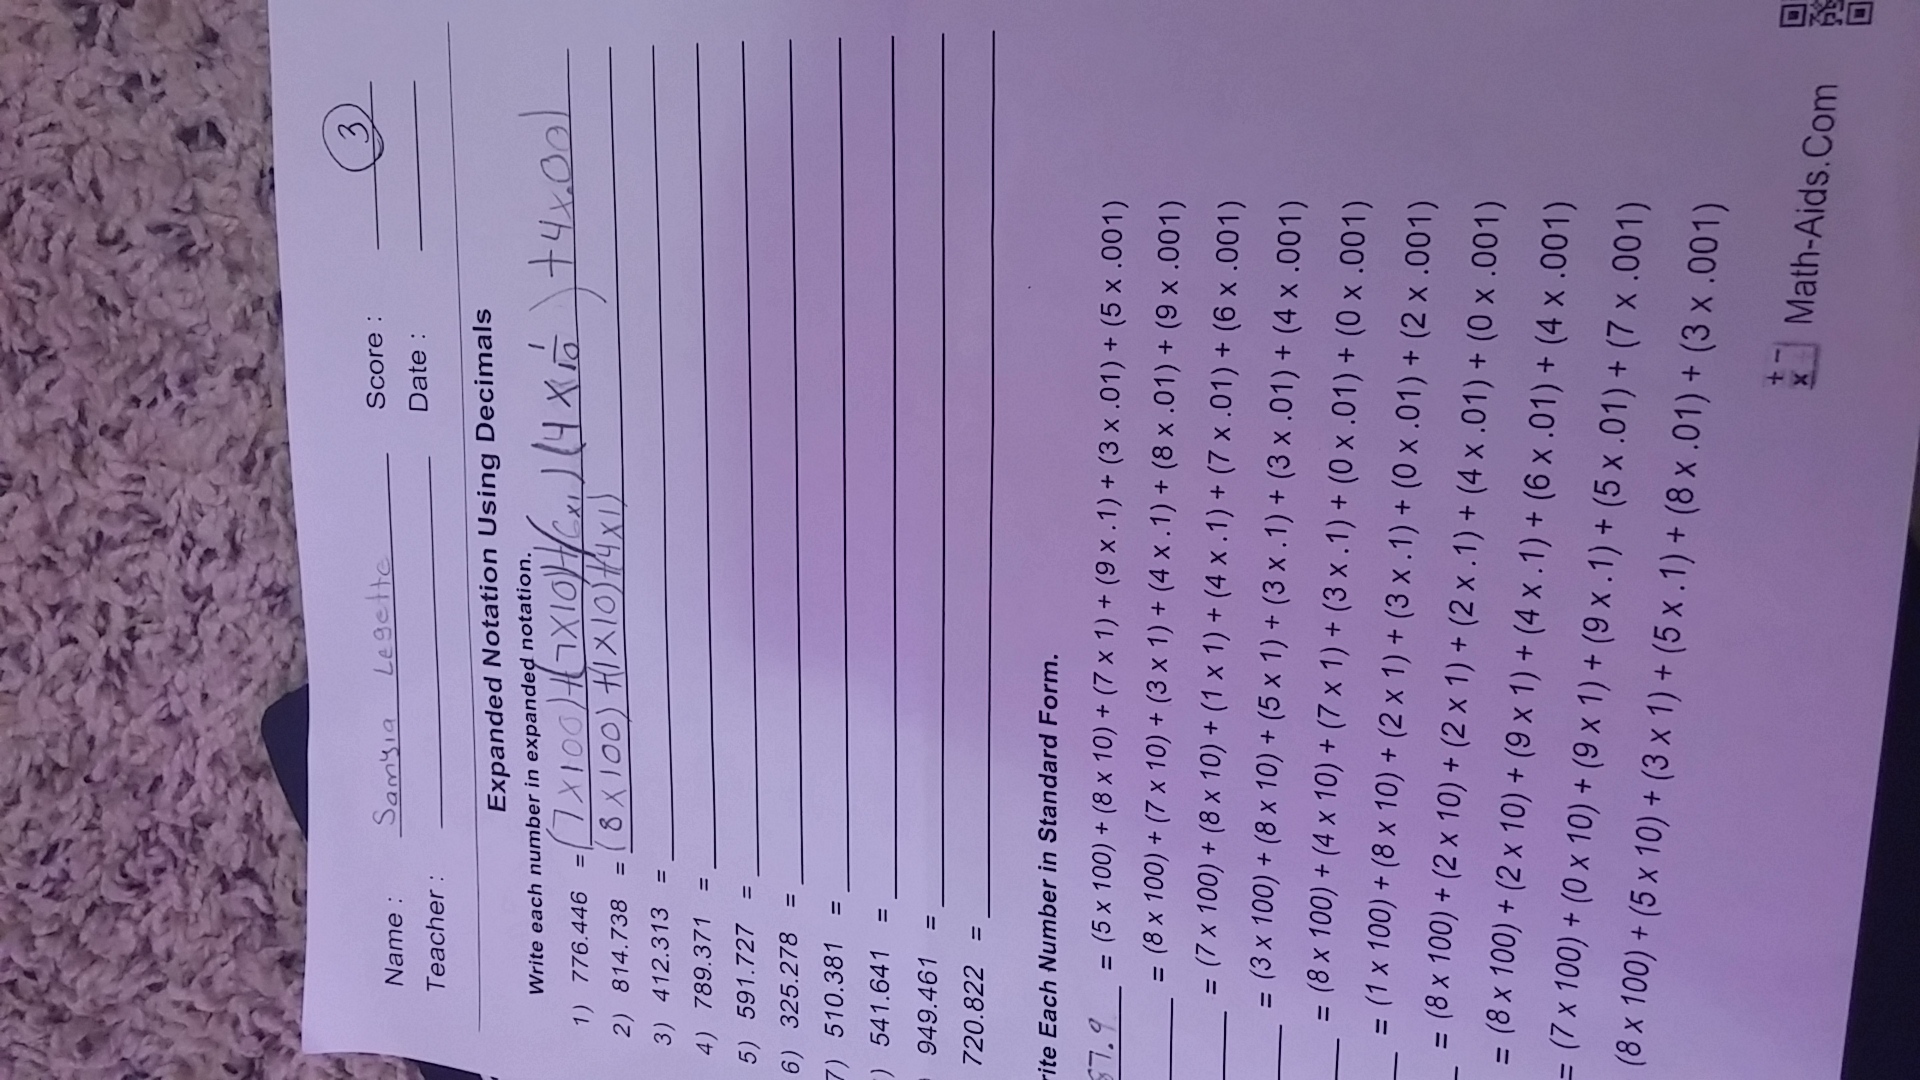 Name : Samyia Legette Score : 3
Teacher : Date :
Expanded Notation Using Decimals
Write each number in expanded notation.
1) 776.446 = (7x100)+(7x10)+(6x1)(4x1/10)+4x.00)
2) 814.738 = (8x100)+(1x10)+(4x1)
3) 412.313 =
4) 789.371 =
5) 591.727 =
6) 325.278 =
7) 510.381 =
) 541.641 =
949.461 =
720.822 =
rite Each Number in Standard Form.
7.9 = (5 x 100) + (8 x 10) + (7 x 1) + (9 x .1) + (3 x .01) + (5 x .001)
= (8 x 100) + (7 x 10) + (3 x 1) + (4 x .1) + (8 x .01) + (9 x .001)
= (7 x 100) + (8 x 10) + (1 x 1) + (4 x .1) + (7 x .01) + (6 x .001)
= (3 x 100) + (8 x 10) + (5 x 1) + (3 x .1) + (3 x .01) + (4 x .001)
= (8 x 100) + (4 x 10) + (7 x 1) + (3 x .1) + (0 x .01) + (0 x .001)
= (1 x 100) + (8 x 10) + (2 x 1) + (3 x .1) + (0 x .01) + (2 x .001)
= (8 x 100) + (2 x 10) + (2 x 1) + (2 x .1) + (4 x .01) + (0 x .001)
= (8 x 100) + (2 x 10) + (9 x 1) + (4 x .1) + (6 x .01) + (4 x .001)
= (7 x 100) + (0 x 10) + (9 x 1) + (9 x .1) + (5 x .01) + (7 x .001)
(8 x 100) + (5 x 10) + (3 x 1) + (5 x .1) + (8 x .01) + (3 x .001)
+ - x Math-Aids.Com